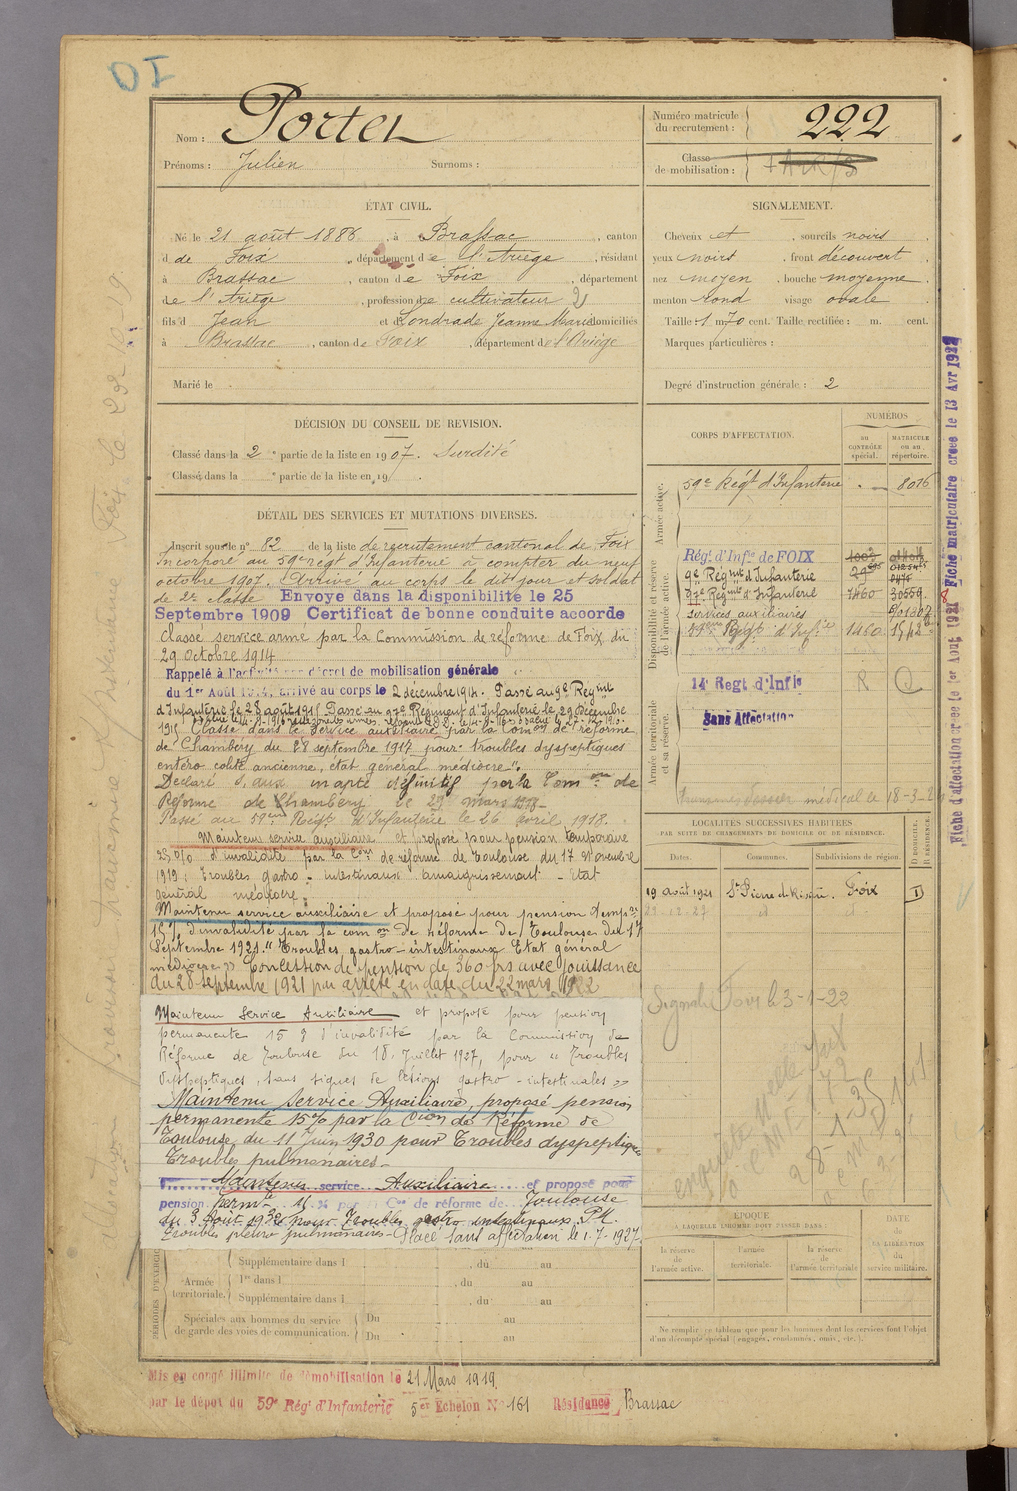 OI
Nom : Portet
Prénoms : Julien Surnoms :
Numéro matricule
du recrutement : 222
Classe
de mobilisation :
ÉTAT CIVIL.
Né le 21 août 1886, à Brassac, canton
d de Foix, département de l'Ariège, résidant
à Brassac, canton de Foix, département
de l'Ariège, profession de cultivateur
fils d Jean et d Londrade Jeanne Marie domiciliés
à Brassac, canton de Foix, département de l'Ariège
Marié le
SIGNALEMENT.
Cheveux et, sourcils noirs,
yeux noirs, front découvert,
nez moyen, bouche moyenne,
menton rond visage ovale.
Taille : 1 m. 70 cent. Taille rectifiée : m. cent.
Marques particulières :
Degré d'instruction générale : 2
DÉCISION DU CONSEIL DE REVISION.
Classé dans la 2e partie de la liste en 1907. Surdité
Classé dans la e partie de la liste en 19
DÉTAIL DES SERVICES ET MUTATIONS DIVERSES.
Inscrit sous le n° 82 de la liste de recrutement cantonal de Foix
Incorporé au 59e régt d'Infanterie à compter du neuf
octobre 1907. Arrivé au corps le dit jour et soldat
de 2e classe Envoye dans la disponibilité le 25
Septembre 1909 Certificat de bonne conduite accorde
Classé service armé par la Commission de réforme de Foix du
29 octobre 1914
Rappelé à l'activité décret de mobilisation générale
du 1er Août 1914, arrivé au corps le 2 décembre 1914. Passé au 9e Regiment
d'Infanterie le 28 août 1915 Passé au 97e Régiment d'Infanterie le 29 Décembre
1915 Classé dans le Service auxiliaire par la Comon de réforme
de Chambéry du 28 septembre 1917 pour "troubles dyspeptiques
entéro colite ancienne, état général médiocre".
Déclaré s. aux inapte définitif par la Comon de
Réforme de Chambéry le 29 mars 1918-
Passé au 59eme Regt d'Infanterie le 26 avril 1918.
Maintenu service auxiliaire et proposé pour pension temporaire
25 0/0 d'invalidité par la Con de réforme de Toulouse du 17 Novembre
1919 : troubles gastro-intestinaux amaigrissement - Etat
général médiocre
Maintenu service auxiliaire et proposé pour pension tempre
15% d'invalidité par la comon de Réforme de Toulouse du 17
Septembre 1921 "Troubles gastro-intestinaux Etat général
médiocre" Concession de pension de 360 frs avec jouissance
du 28 septembre 1921 par arrêté en date du 22 mars 1922
Maintenu Service Auxiliaire et proposé pour pension
permanente 15 % d'invalidité par la Commission de
Réforme de Toulouse du 18 Juillet 1927, pour "Troubles
dyspeptiques, sans signes de lésions gastro-intestinales"
Maintenu Service Auxiliaire, proposé pension
permanente 15% par la Cion de Réforme de
Toulouse du 11 Juin 1930 pour Troubles dyspeptiques
Troubles pulmonaires-
Maintenu service Auxiliaire et proposé pour
pension permte 15 % par Con de réforme de Toulouse
du 3 Août 1932 pour Troubles gastro intestinaux
Troubles pleuro pulmonaires- Placé sans affectation le 1.7.1927
Supplémentaire dans l , du au
Armée
territoriale.
1re dans l , du au
Supplémentaire dans l , du au
Spéciales aux hommes du service
de garde des voies de communication.
Du au
Du au
Mis en congé illimité de démobilisation le 21 Mars 1919
par le dépot du 59e Régt d'Infanterie 5e Echelon N° 161 Résidance Brassac
CORPS D'AFFECTATION.
NUMÉROS
au
CONTRÔLE
spécial.
MATRICULE
ou au
répertoire.
Armée active.
59e Régt d'Infanterie - 8016
Disponibilité et réserve
de l'armée active.
Régt d'Infie de FOIX
9e Régmt d'Infanterie
97e Régmt d'Infanterie 1460 30559
Services auxiliaires
14e Regt d'Infie R
Sans Affectation
Armée territoriale
et sa réserve.
médical le 18-3-2
LOCALITÉS SUCCESSIVES HABITÉES
PAR SUITE DE CHANGEMENTS DE DOMICILE OU DE RÉSIDENCE.
Dates. Communes. Subdivisions de région.
D DOMICILE.
R RÉSIDENCE.
19 août 1921 St Pierre de Rivière. Foix D
22-12-27 d d
Signalé Foix le 3-1-22
enquête
ÉPOQUE
À LAQUELLE L'HOMME DOIT PASSER DANS :
la réserve
de
l'armée active.
l'armée
territoriale.
la réserve
de
l'armée territoriale
DATE
de
LA LIBÉRATION
du
service militaire.
Ne remplir ce tableau que pour les hommes dont les services font l'objet
d'un décompte spécial (engagés, condamnés, omis, etc.).
Fiche d'affectation creee le 1er Aout 1921 Fiche matriculaire creee le 13 Avr 1927